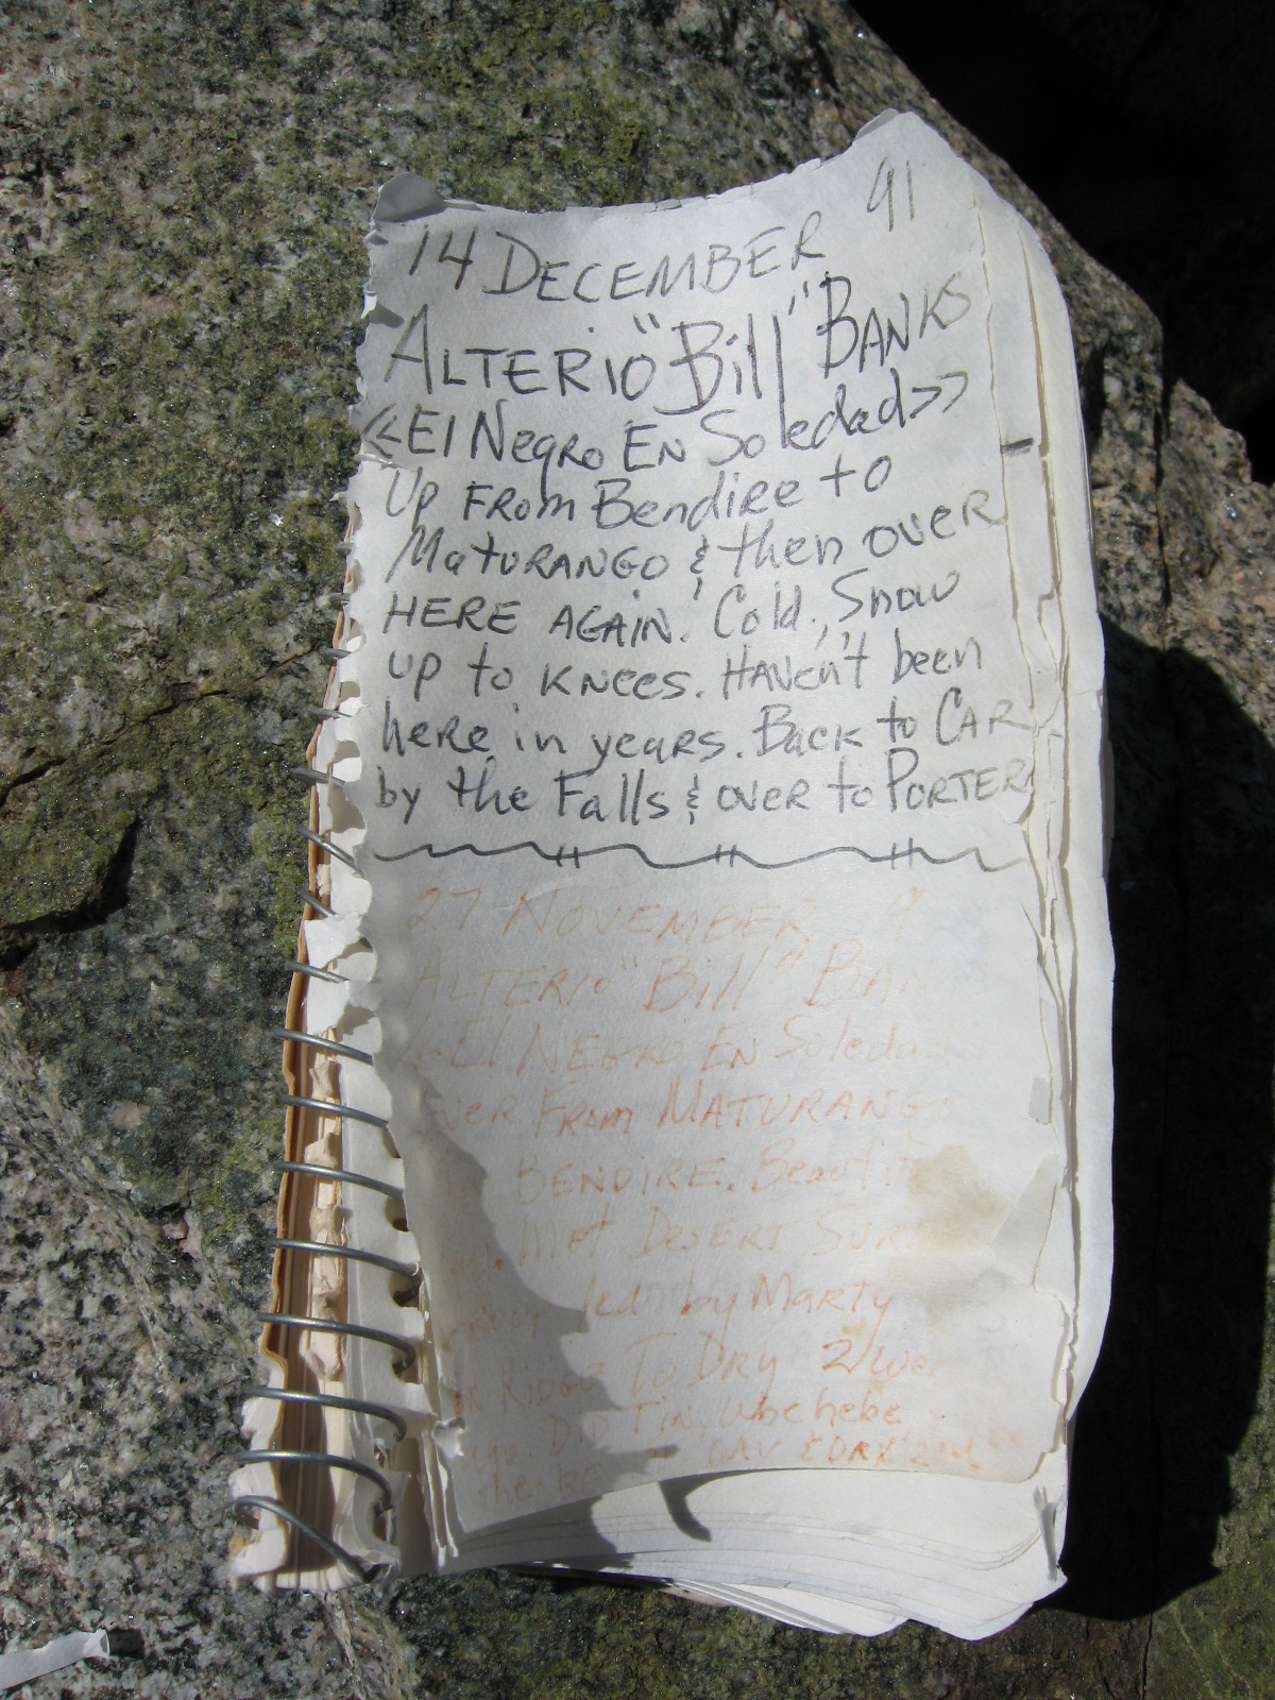 14 DECEMBER 91
ALTERIO "Bill" BANKS
<<El Negro EN Soledad>>
Up FROM Bendire to
MaTURANGO & then over
HERE AGAIN. Cold, Snow
up to KNees. HAVEn't been
here in years. Back to CAR
by the Falls & over to PORTER
27 NOVEMBER 9
ALTERIO "Bill"
El NEGRO EN
FROM MATURANGO
BENDIRE.
Met DESERT
led by MARTY
To DRY
DID TIN, Ubehebe
& DRY